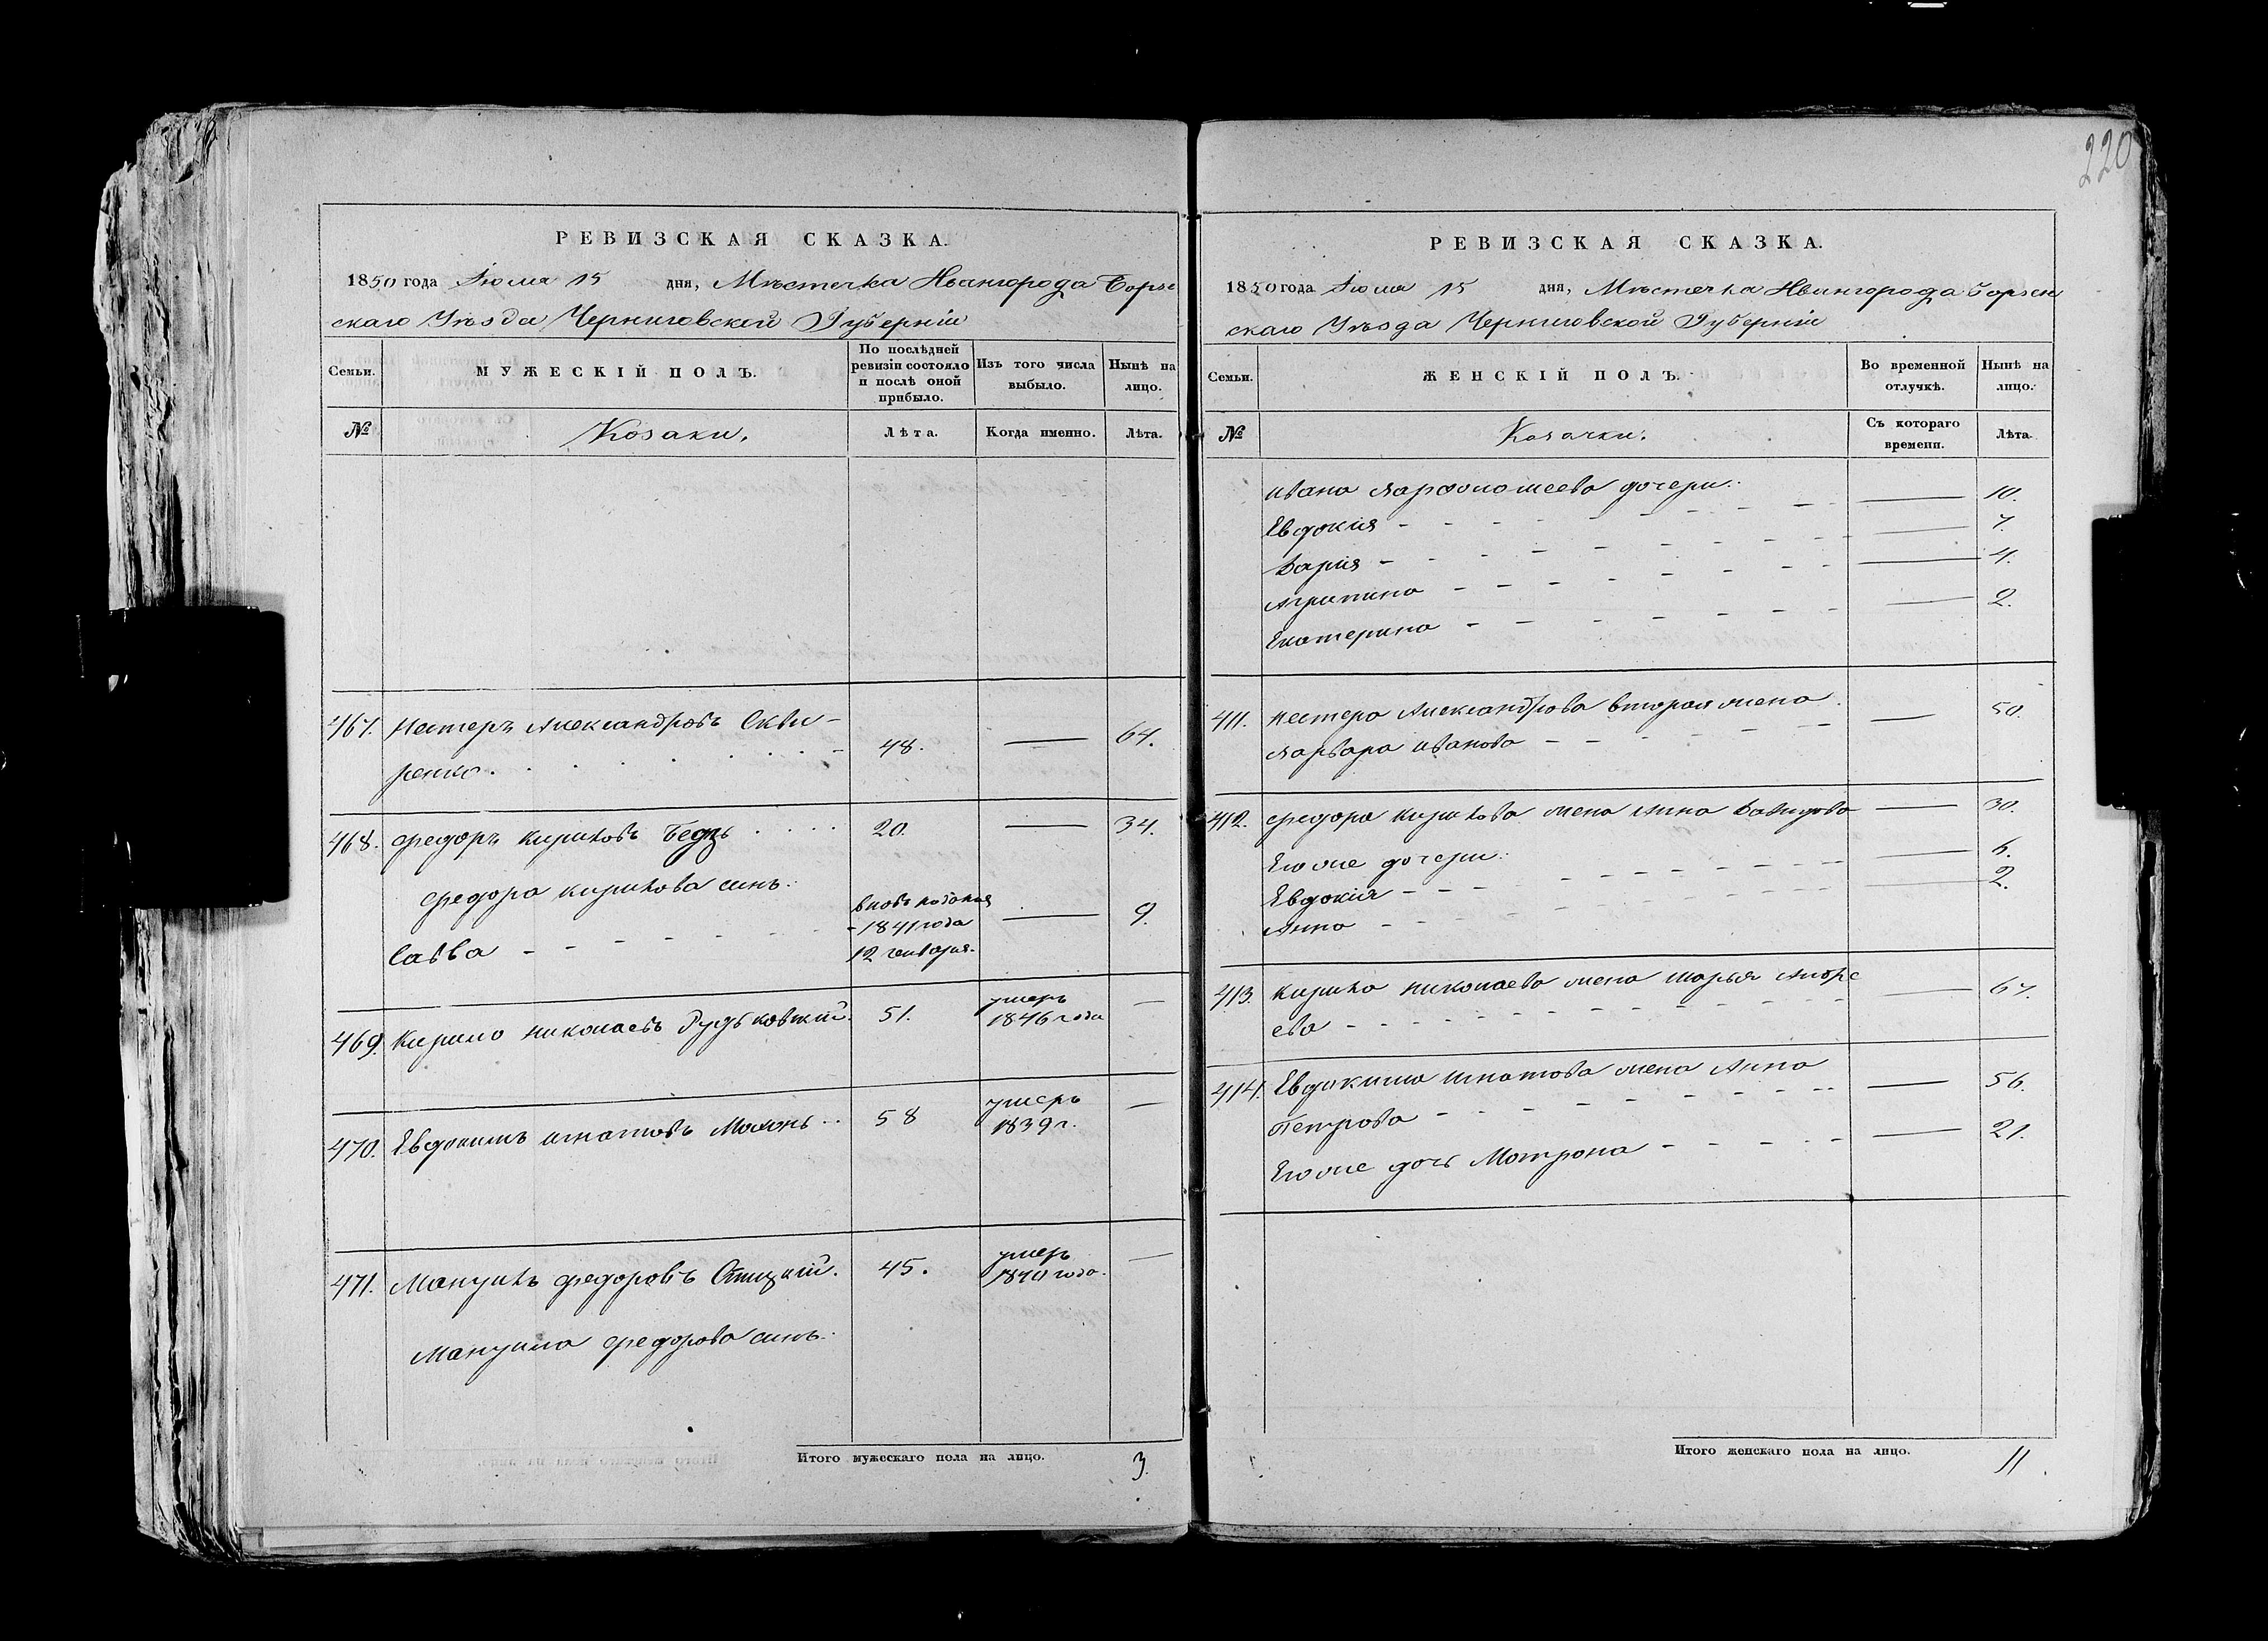 220
РЕВИЗСКАЯ СКАЗКА.
1850 года Іюля 15 дня, Мѣстечка Ивангорода Борзе
скаго Уѣзда Черниговской Губерніи
Семьи.
МУЖЕСКІЙ ПОЛЪ.
По послѣдней
ревизіи состояло
и послѣ оной
прибыло.
Изъ того числа
выбыло.
Нынѣ на
лицо.
№
Козаки.
Лѣта.
Когда именно.
Лѣта.
467. Нестеръ Александровъ Скви-
ренко. 48. — 64.
468. Федоръ Кириловъ Бедъ 20. — 34.
Федора Кирилова сынъ:
Савва вновь
1841 года
12 генваря. — 9.
469. Кирило Николаевъ 51. умеръ
1846 года —
470. Евдокимъ Игнатовъ 58 умеръ
1839 г. —
471. Мануилъ Федоровъ 45. умеръ
1840 года. —
Мануила Федорова сынъ:
Итого мужескаго пола на лицо. 3.
РЕВИЗСКАЯ СКАЗКА.
1850 года Іюля 15 дня, Мѣстечка Ивангорода Борзен
скаго Уѣзда Черниговской Губерніи
Семьи.
ЖЕНСКІЙ ПОЛЪ.
Во временной
отлучкѣ.
Нынѣ на
лицо.
№
Козачки.
Съ котораго
времени.
Лѣта.
Ивана Варфоломеева дочери:
Евдокія — 10.
Дарія — 7.
Агрипина — 4.
Екатерина — 2.
411. Нестера Александрова вторая жена
Варвара Иванова — 50.
412. Федора Кирилова жена Анна Давидова — 30.
Его же дочери:
Евдокія — 6.
Анна — 2.
413. Кирила Николаева жена Марья Андре
ева — 67.
414. Евдокима Игнатова жена Анна
Петрова — 56.
Его же дочь Матрона — 21.
Итого женскаго пола на лицо. 11.